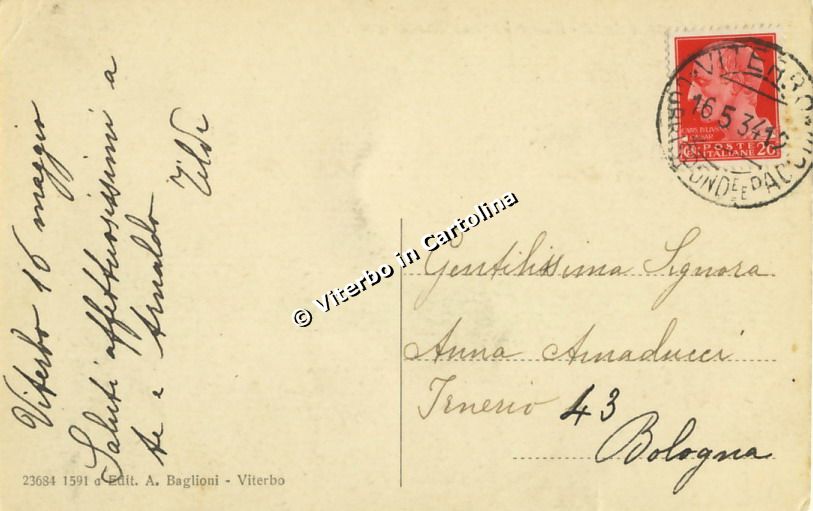 Viterbo 16 maggio
Saluti affettuosissimi a
te e Arnaldo
Tilde
VITERBO
16.5.34 12
CORRISPONDE E PACCHI
CAIVS IVLIVS
CAESAR
POSTE
ITALIANE 20
© Viterbo in Cartolina
Gentilissima Signora
Anna Amaducci
Irnerio 43
Bologna
23684 1591 d Edit. A. Baglioni - Viterbo